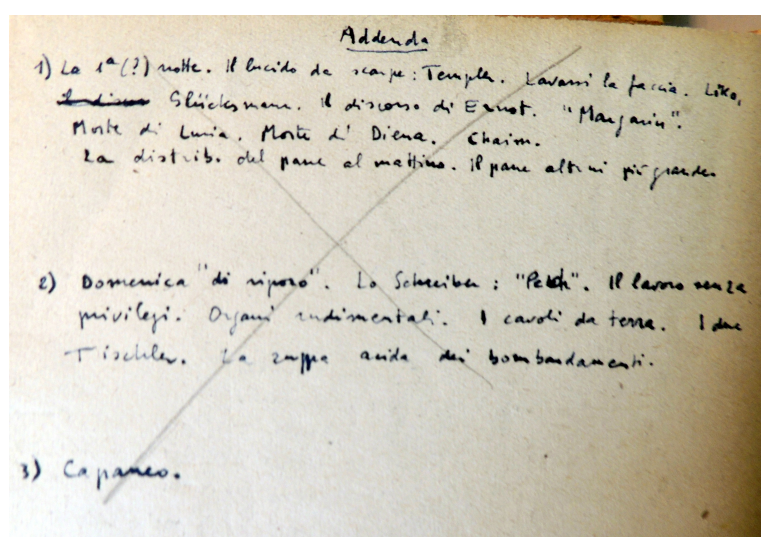 Addenda
1) La 1ª (?) notte. Il lucido da scarpe: Templer. Lavarsi la faccia. Liko,
Glücksmann. Il discorso di Ernst. "Margarin".
Morte di Luria. Morte di Diena. Chaim.
La distrib. del pane al mattino. Il pane altrui più grande.
2) Domenica "di riposo". Lo Schreiber: "Pech". Il lavoro senza
privilegi. Organi rudimentali. I cavoli da terra. I due
Tischler. La zuppa acida dei bombardamenti.
3) Capaneo.